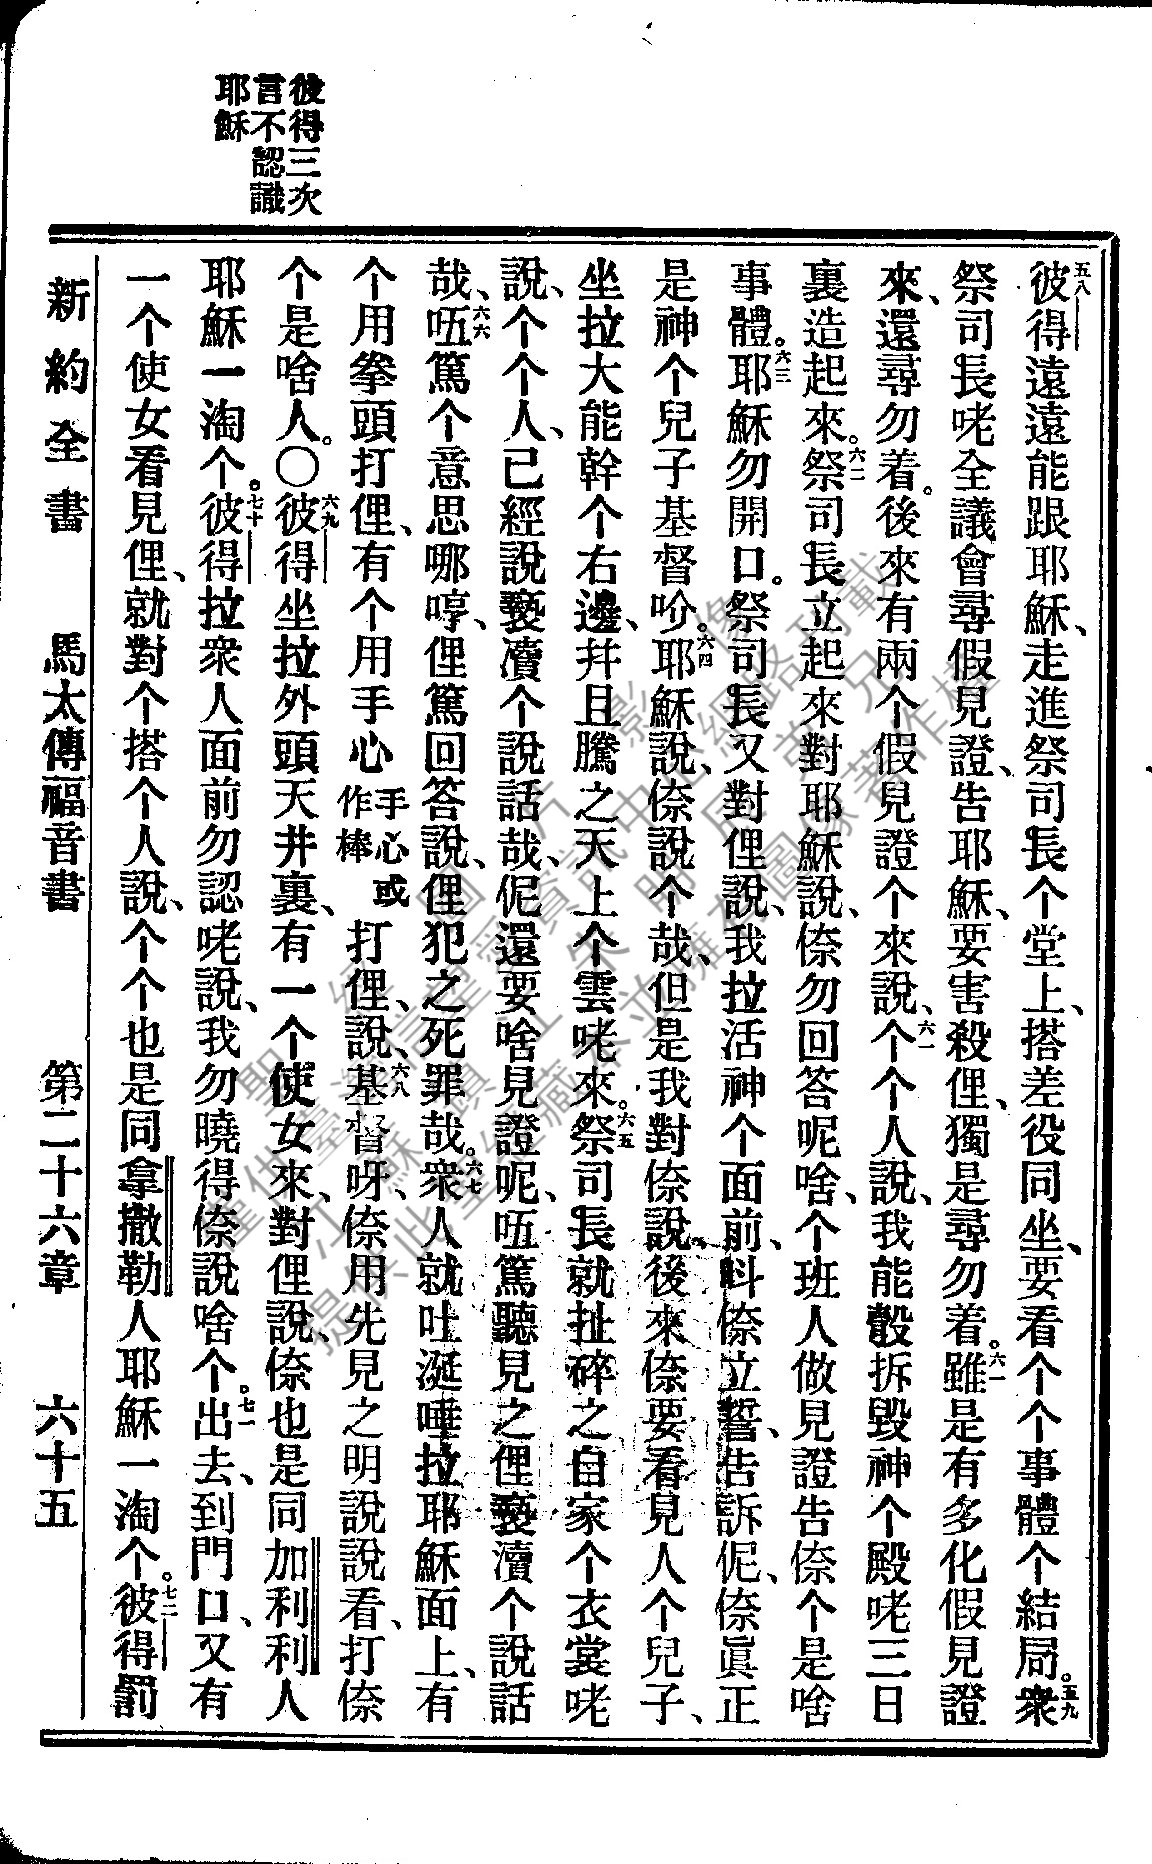 彼得三次
言不認識
耶穌
五八彼得遠遠能跟耶穌、走進祭司長个堂上、搭差役同坐、要看个个事體个結局。五九衆
祭司長咾全議會尋假見證、告耶穌、要害殺俚、獨是尋勿着。六十雖是有多化假見證
來、還尋勿着。後來有兩个假見證个來說、六一个个人說、我能彀拆毀神个殿咾三日
裏造起來。六二祭司長立起來對耶穌說、倷勿回答呢啥、个班人做見證告倷个是啥
事體。六三耶穌勿開口。祭司長又對俚說、我拉活神个面前、呌倷立誓、告訴伲、倷眞正
是神个兒子基督吤。六四耶穌說、倷說个哉、但是我對倷說、後來倷要看見人个兒子、
坐拉大能幹个右邊、幷且騰之天上个雲咾來。六五祭司長就扯碎之自家个衣裳咾
說、个个人、已經說褻瀆个說話哉、伲還要啥見證呢、㕶篤聽見之俚褻瀆个說話
哉、六六㕶篤个意思哪哼、俚篤回答說、俚犯之死罪哉。六七衆人就吐涎唾拉耶穌面上、有
个用拳頭打俚、有个用手心手心或作棒打俚、說、六八基督呀、倷用先見之明說說看、打倷
个是啥人。〇六九彼得坐拉外頭天井裏、有一个使女來、對俚說、倷也是同加利利人
耶穌一淘个。七十彼得拉衆人面前勿認咾說、我勿曉得倷說啥个。七一出去、到門口、又有
一个使女看見俚、就對个搭个人說、个个也是同拿撒勒人耶穌一淘个。七二彼得罰
新約全書 馬太傳福音書 第二十六章 六十五